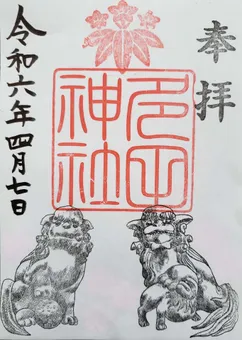 奉拝
多田
神社
令和六年四月七日